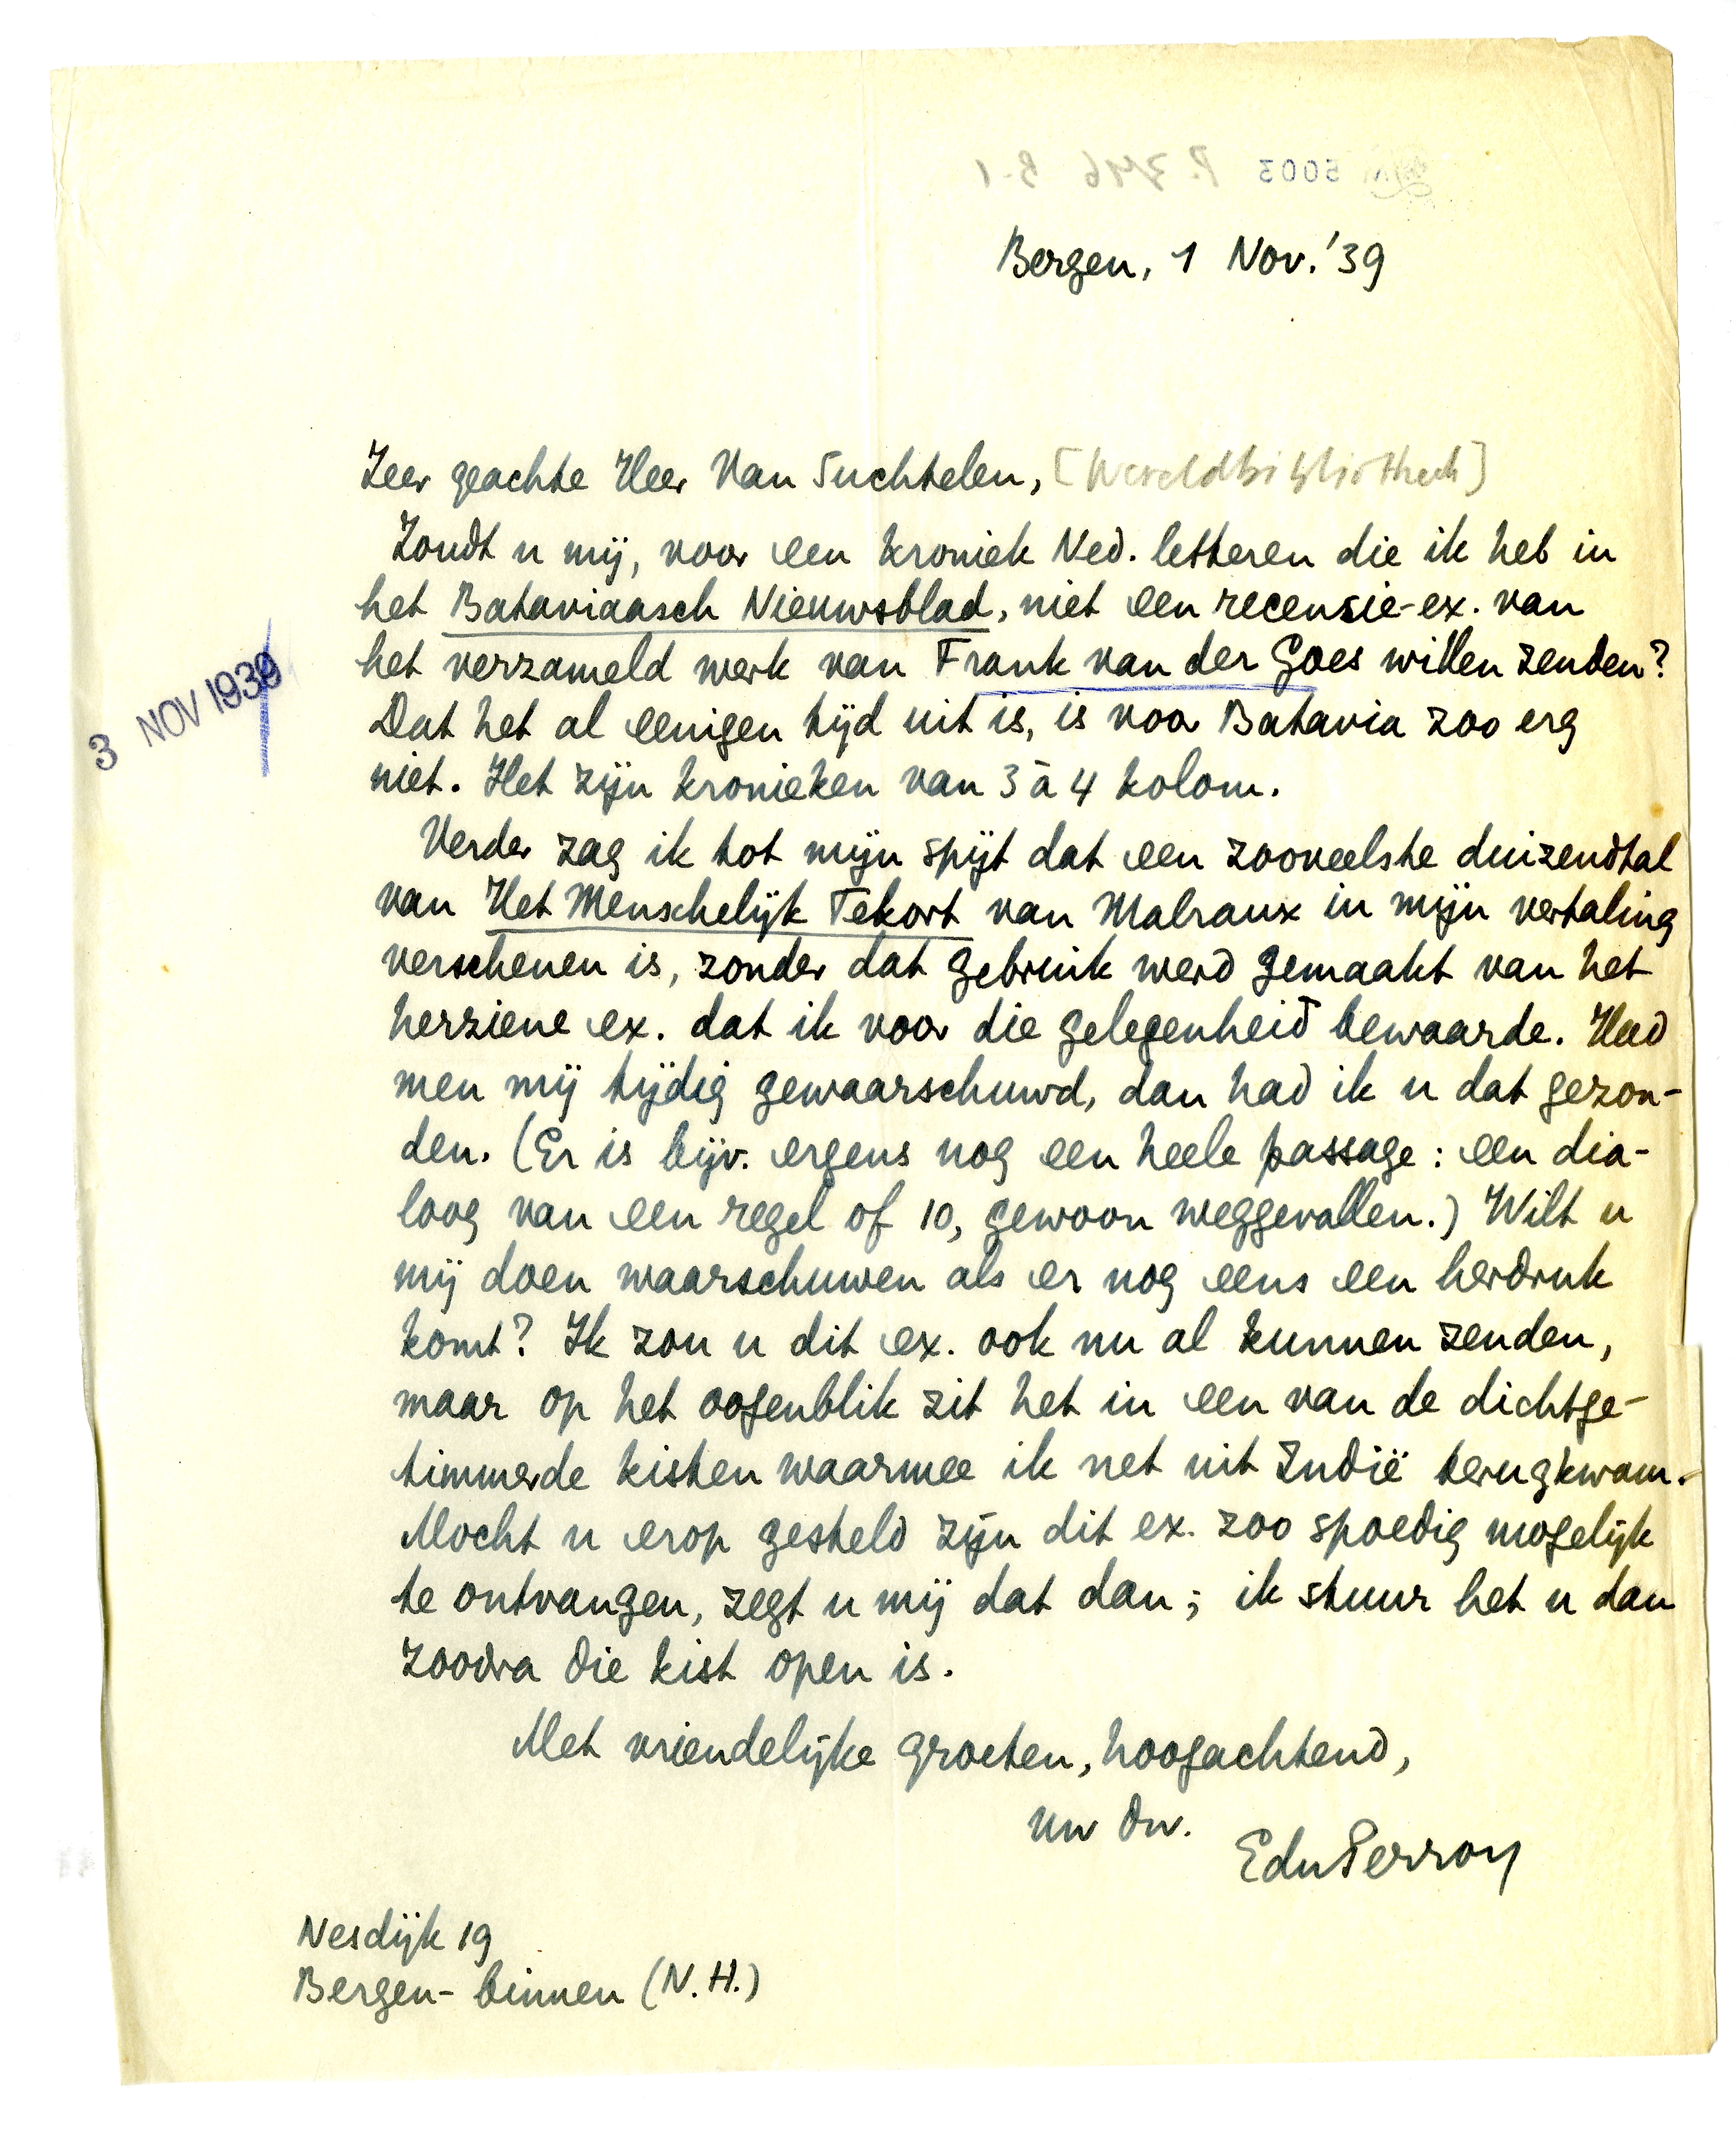 Bergen, 1 Nov. '39
Zeer geachte Heer Van Suchtelen, [Wereldbibliotheek]
Zoudt u mij, voor een kroniek Ned. letteren die ik heb in
het Bataviaasch Nieuwsblad, niet een recensie-ex. van
het verzameld werk van Frank van der Goes willen zenden?
3 NOV 1939
Dat het al eenigen tijd uit is, is voor Batavia zoo erg
niet. Het zijn kronieken van 3 à 4 kolom.
Verder zag ik tot mijn spijt dat een zooveelste duizendtal
van Het Menschelijk Tekort van Malraux in mijn vertaling
verschenen is, zonder dat gebruik werd gemaakt van het
herziene ex. dat ik voor die gelegenheid bewaarde. Had
men mij tijdig gewaarschuwd, dan had ik u dat gezon-
den. (Er is bijv. ergens nog een heele passage: een dia-
loog van een regel of 10, gewoon weggevallen.) Wilt u
mij doen waarschuwen als er nog eens een herdruk
komt? Ik zou u dit ex. ook nu al kunnen zenden,
maar op het oogenblik zit het in een van de dichtge-
timmerde kisten waarmee ik net uit Indië terugkwam.
Mocht u erop gesteld zijn dit ex. zoo spoedig mogelijk
te ontvangen, zegt u mij dat dan; ik stuur het u dan
zoodra die kist open is.
Met vriendelijke groeten, hoogachtend,
uw dw.
EduPerron
Nesdijk 19
Bergen-binnen (N.H.)